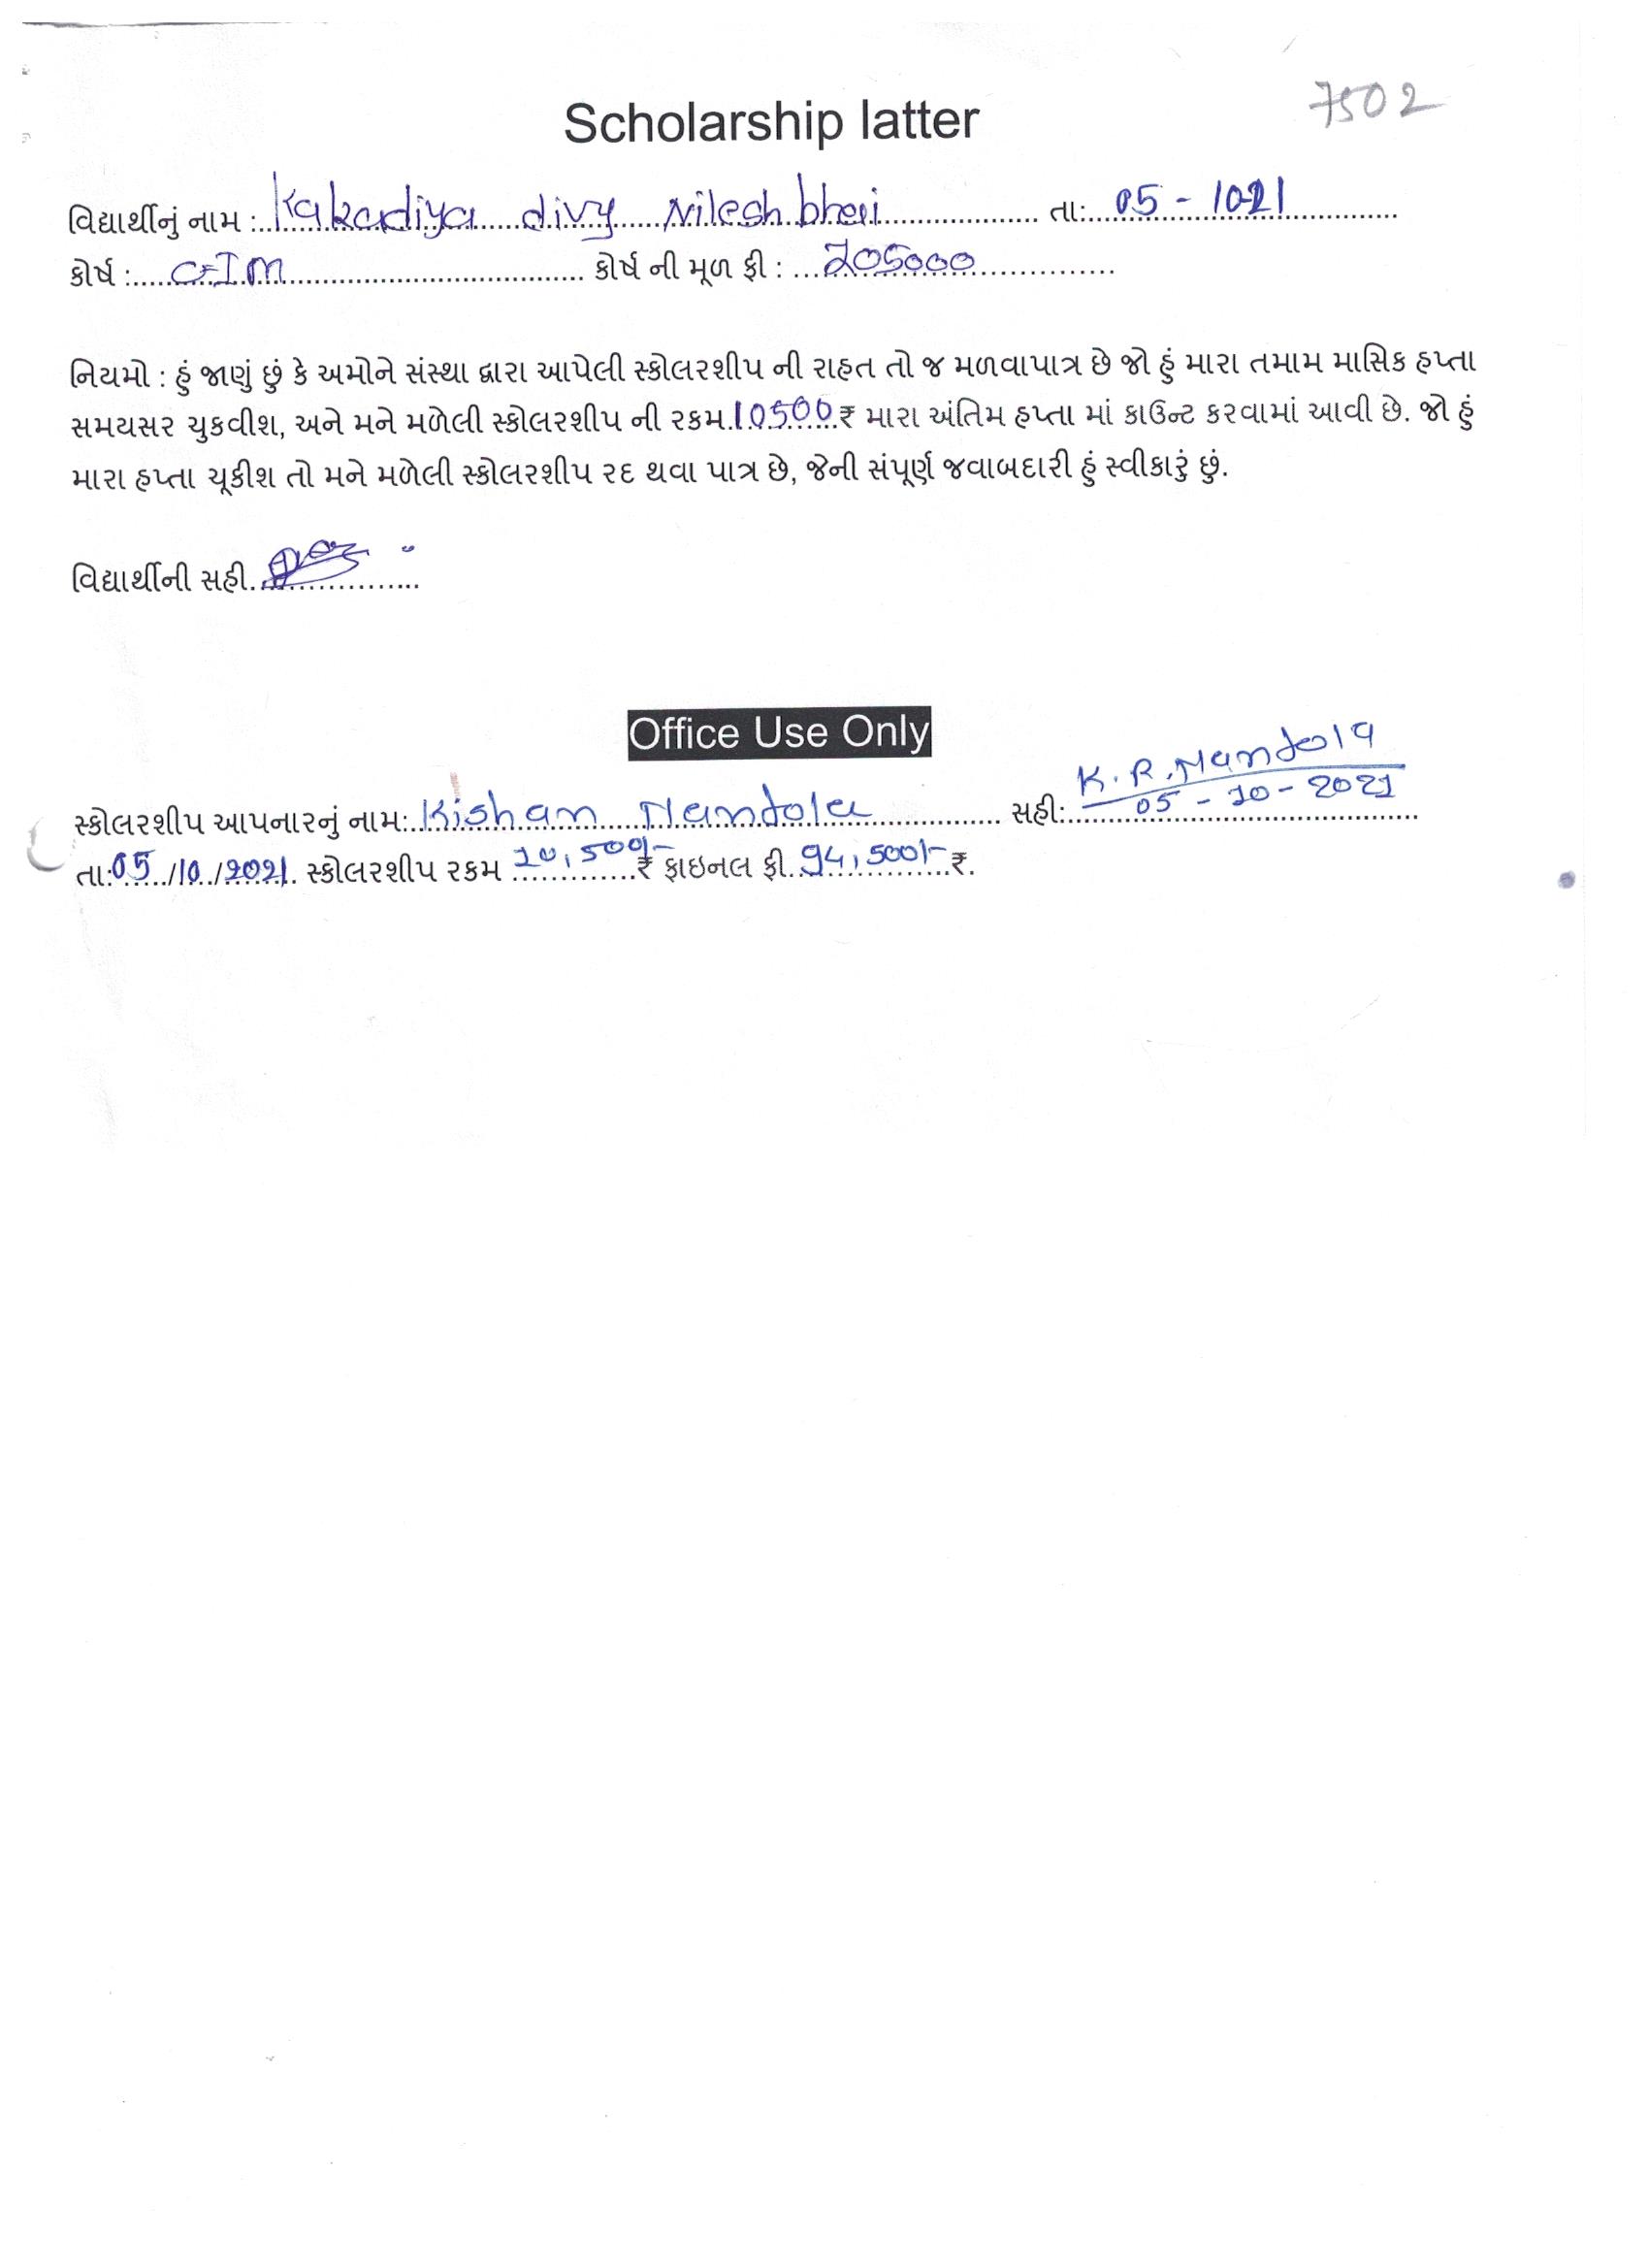 7502
Scholarship latter
વિદ્યાર્થીનું નામ : Kakadiya divy Nileshbhai તા: 05 - 10-21
કોર્ષ : CFIM કોર્ષ ની મૂળ ફી : 205000
નિયમો : હું જાણું છું કે અમોને સંસ્થા દ્વારા આપેલી સ્કોલરશીપ ની રાહત તો જ મળવાપાત્ર છે જો હું મારા તમામ માસિક હપ્તા
સમયસર ચુકવીશ, અને મને મળેલી સ્કોલરશીપ ની રકમ 10500 ₹ મારા અંતિમ હપ્તા માં કાઉન્ટ કરવામાં આવી છે. જો હું
મારા હપ્તા ચૂકીશ તો મને મળેલી સ્કોલરશીપ રદ થવા પાત્ર છે, જેની સંપૂર્ણ જવાબદારી હું સ્વીકારું છું.
વિદ્યાર્થીની સહી
Office Use Only
સ્કોલરશીપ આપનારનું નામ: Kishan Nandola સહી: K.R.Nandola
05 - 10 - 2021
તા: 05/10/2021. સ્કોલરશીપ રકમ 10,500/- ₹ ફાઇનલ ફી 94,500/- ₹.